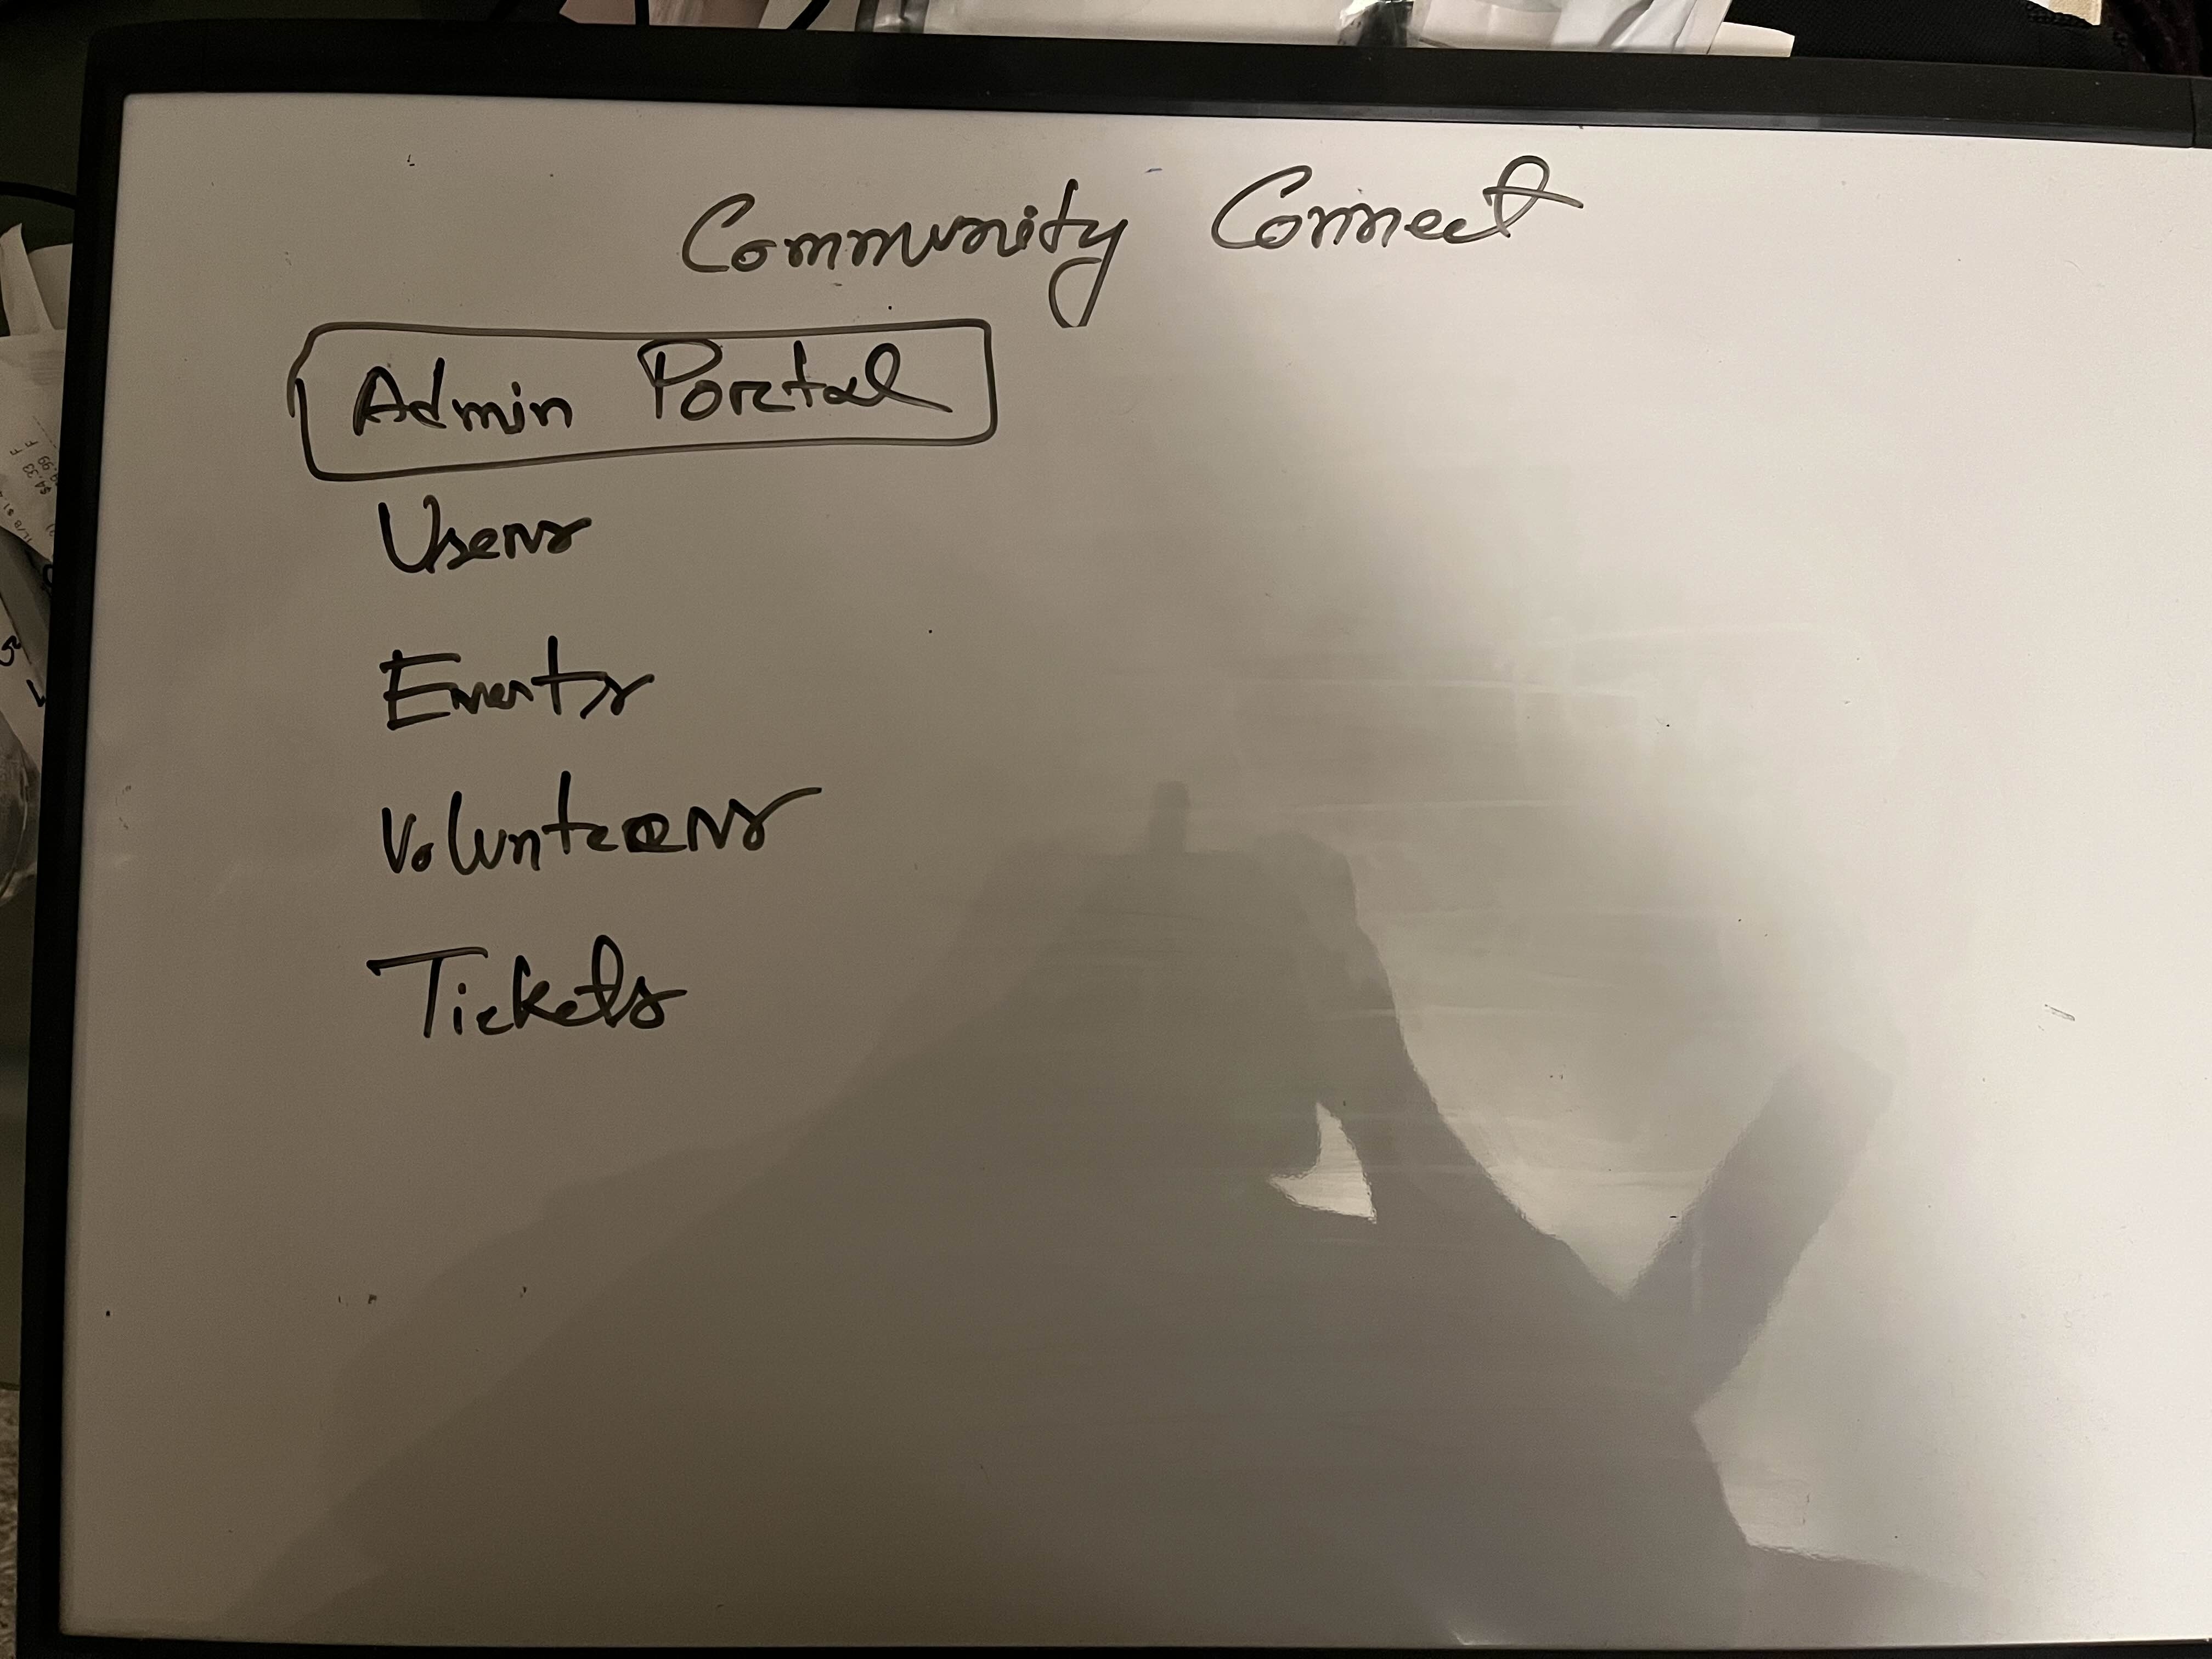 Community Connect
Admin Portal
Users
Events
Volunteers
Tickets
$4.33 F